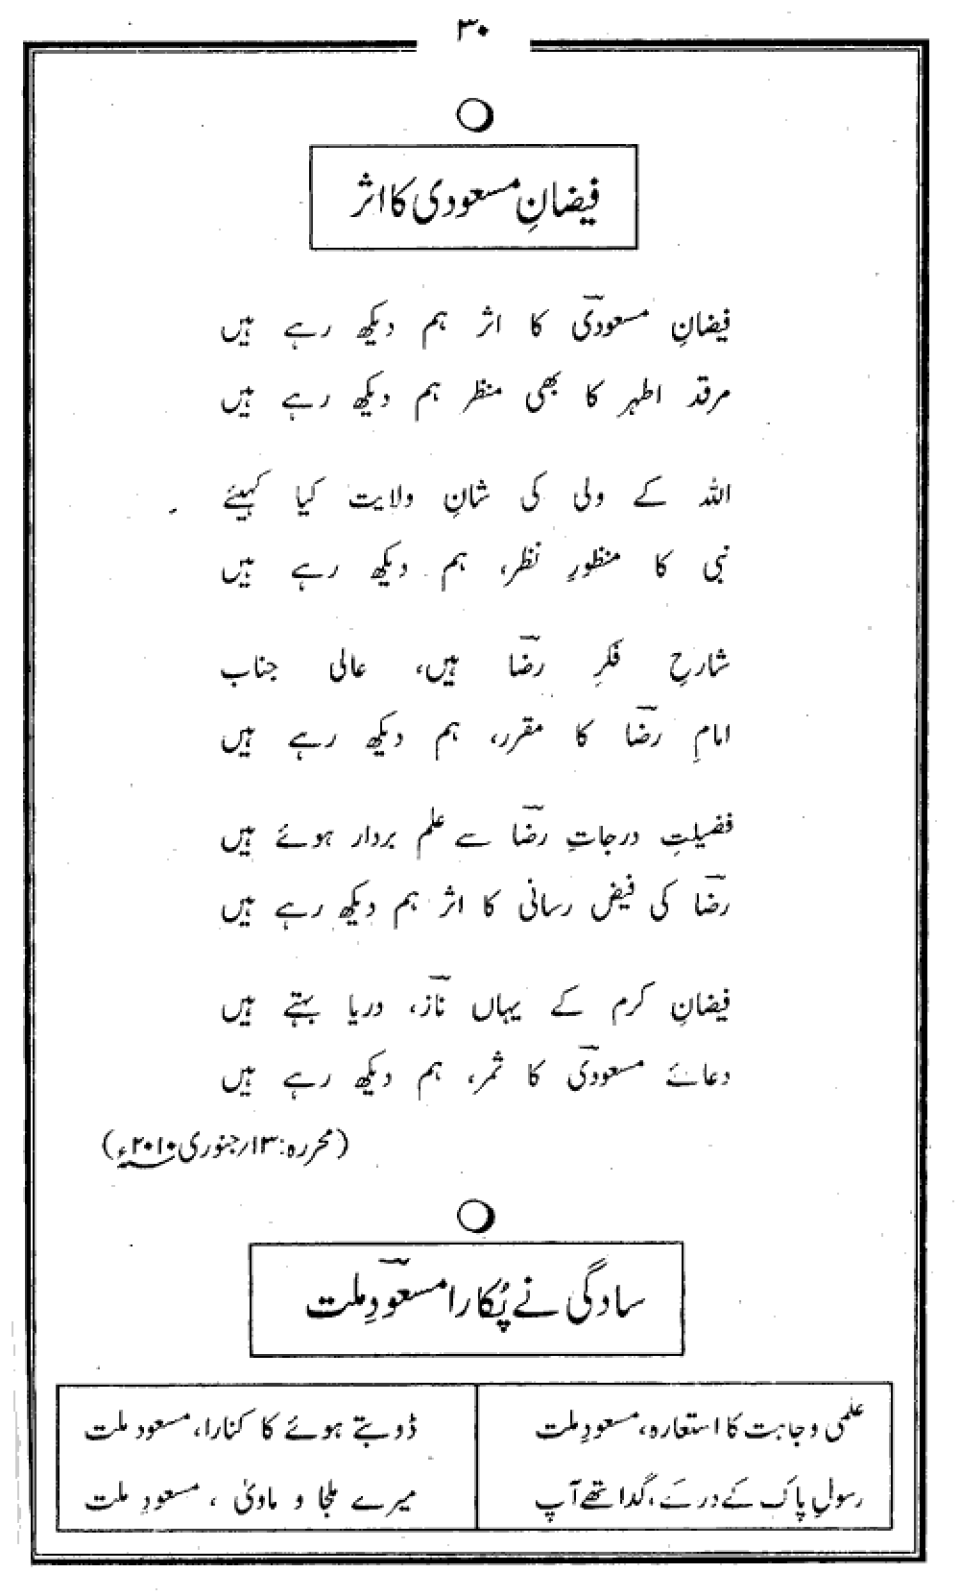 ۳۰
فیضانِ مسعودی کا اثر
فیضانِ مسعودیؔ کا اثر ہم دیکھ رہے ہیں
مرقد اطہر کا بھی منظر ہم دیکھ رہے ہیں
اللہ کے ولی کی شانِ ولایت کیا کہیئے
نبی کا منظورِ نظر، ہم دیکھ رہے ہیں
شارحِ فکرِ رضاؔ ہیں، عالی جناب
امامِ رضاؔ کا مقرر، ہم دیکھ رہے ہیں
فضیلتِ درجاتِ رضاؔ سے علم بردار ہوئے ہیں
رضاؔ کی فیض رسانی کا اثر ہم دیکھ رہے ہیں
فیضانِ کرم کے یہاں نازؔ، دریا بہتے ہیں
دعائے مسعودیؔ کا ثمر، ہم دیکھ رہے ہیں
(محررہ: ۱۳؍جنوری ۲۰۱۰ء)
سادگی نے پُکارا مسعودؔ ِملت
علمی وجاہت کا استعارہ، مسعودِ ملت ڈوبتے ہوئے کا کنارا، مسعود ملت
رسولِ پاک کے در کے، گدا تھے آپ میرے ملجا و ماویٰ، مسعودِ ملت